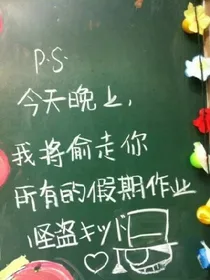 P.S.
今天晚上,
我将偷走你
所有的假期作业
怪盗キッド